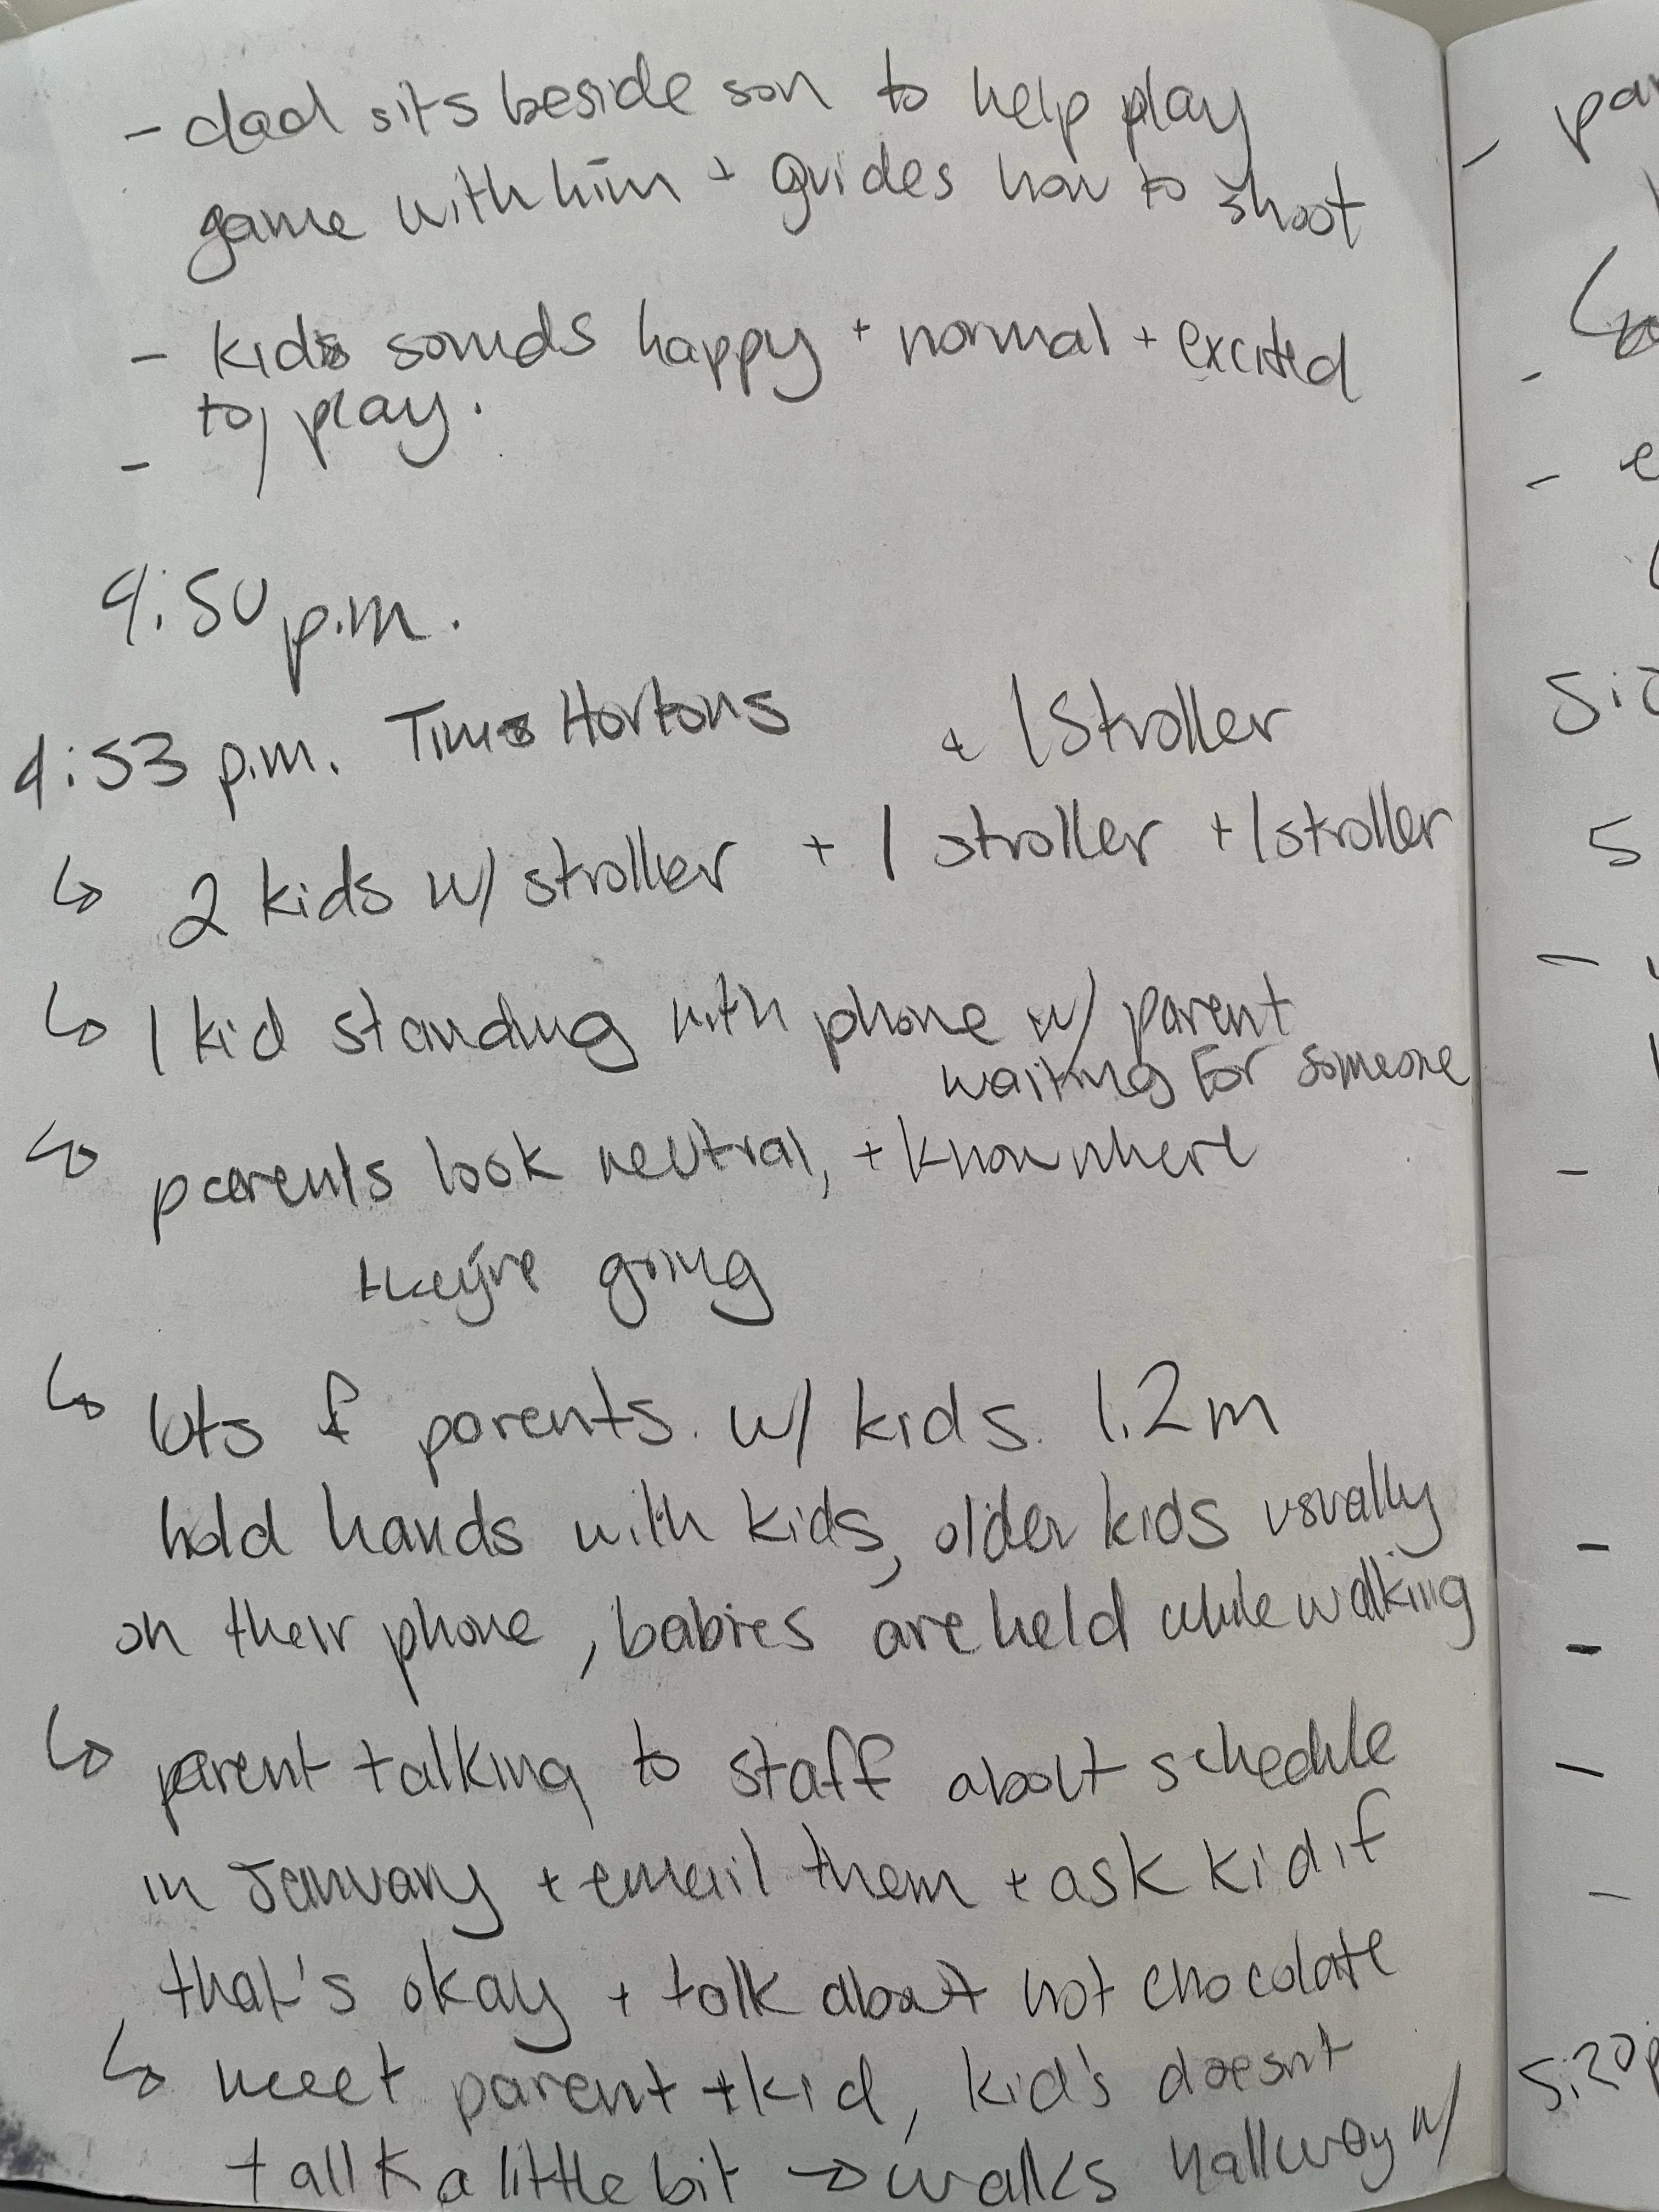 - dad sits beside son to help play
game with him + guides how to shoot
- kids sounds happy + normal + excited
to play.
-
4:50 p.m.
4:53 p.m. Tims Hortons
+ 1 Stroller
↳ 2 kids w/ stroller + 1 stroller + 1 stroller
↳ 1 kid standing with phone w/ parent
waiting for someone
↳ parents look neutral, + know where
they're going
↳ lots of parents. w/ kids. 1.2m
hold hands with kids, older kids usually
on their phone, babies are held while walking
↳ parent talking to staff about schedule
in January + email them + ask kid if
that's okay + talk about hot chocolate
↳ meet parent + kid, kid's doesnt
talk a little bit → walks hallway w/
- par
-
- e
5:2
5
-
-
-
-
-
-
5:20p